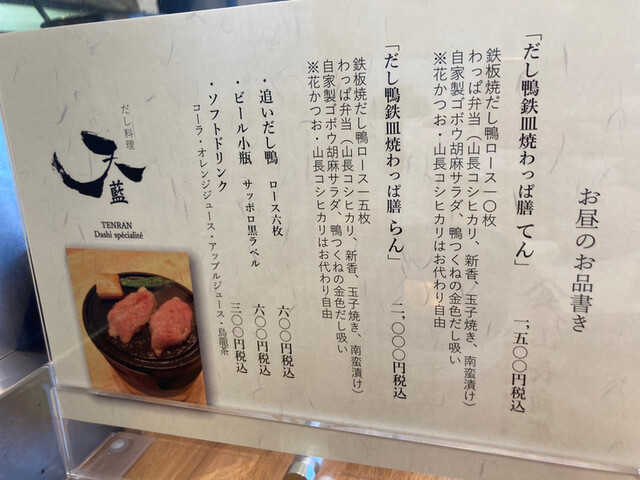 お昼のお品書き
「だし鴨鉄皿焼わっぱ膳 てん」 一、五〇〇円税込
鉄板焼だし鴨ロース一〇枚
わっぱ弁当（山長コシヒカリ、新香、玉子焼き、南蛮漬け）
自家製ゴボウ胡麻サラダ、鴨つくねの金色だし吸い
※花かつお・山長コシヒカリはお代わり自由
「だし鴨鉄皿焼わっぱ膳 らん」 二、〇〇〇円税込
鉄板焼だし鴨ロース一五枚
わっぱ弁当（山長コシヒカリ、新香、玉子焼き、南蛮漬け）
自家製ゴボウ胡麻サラダ、鴨つくねの金色だし吸い
※花かつお・山長コシヒカリはお代わり自由
・追いだし鴨 ロース六枚 六〇〇円税込
・ビール小瓶 サッポロ黒ラベル 六〇〇円税込
・ソフトドリンク 三〇〇円税込
コーラ・オレンジジュース・アップルジュース・烏龍茶
だし料理
天藍
TENRAN
Dashi spécialité